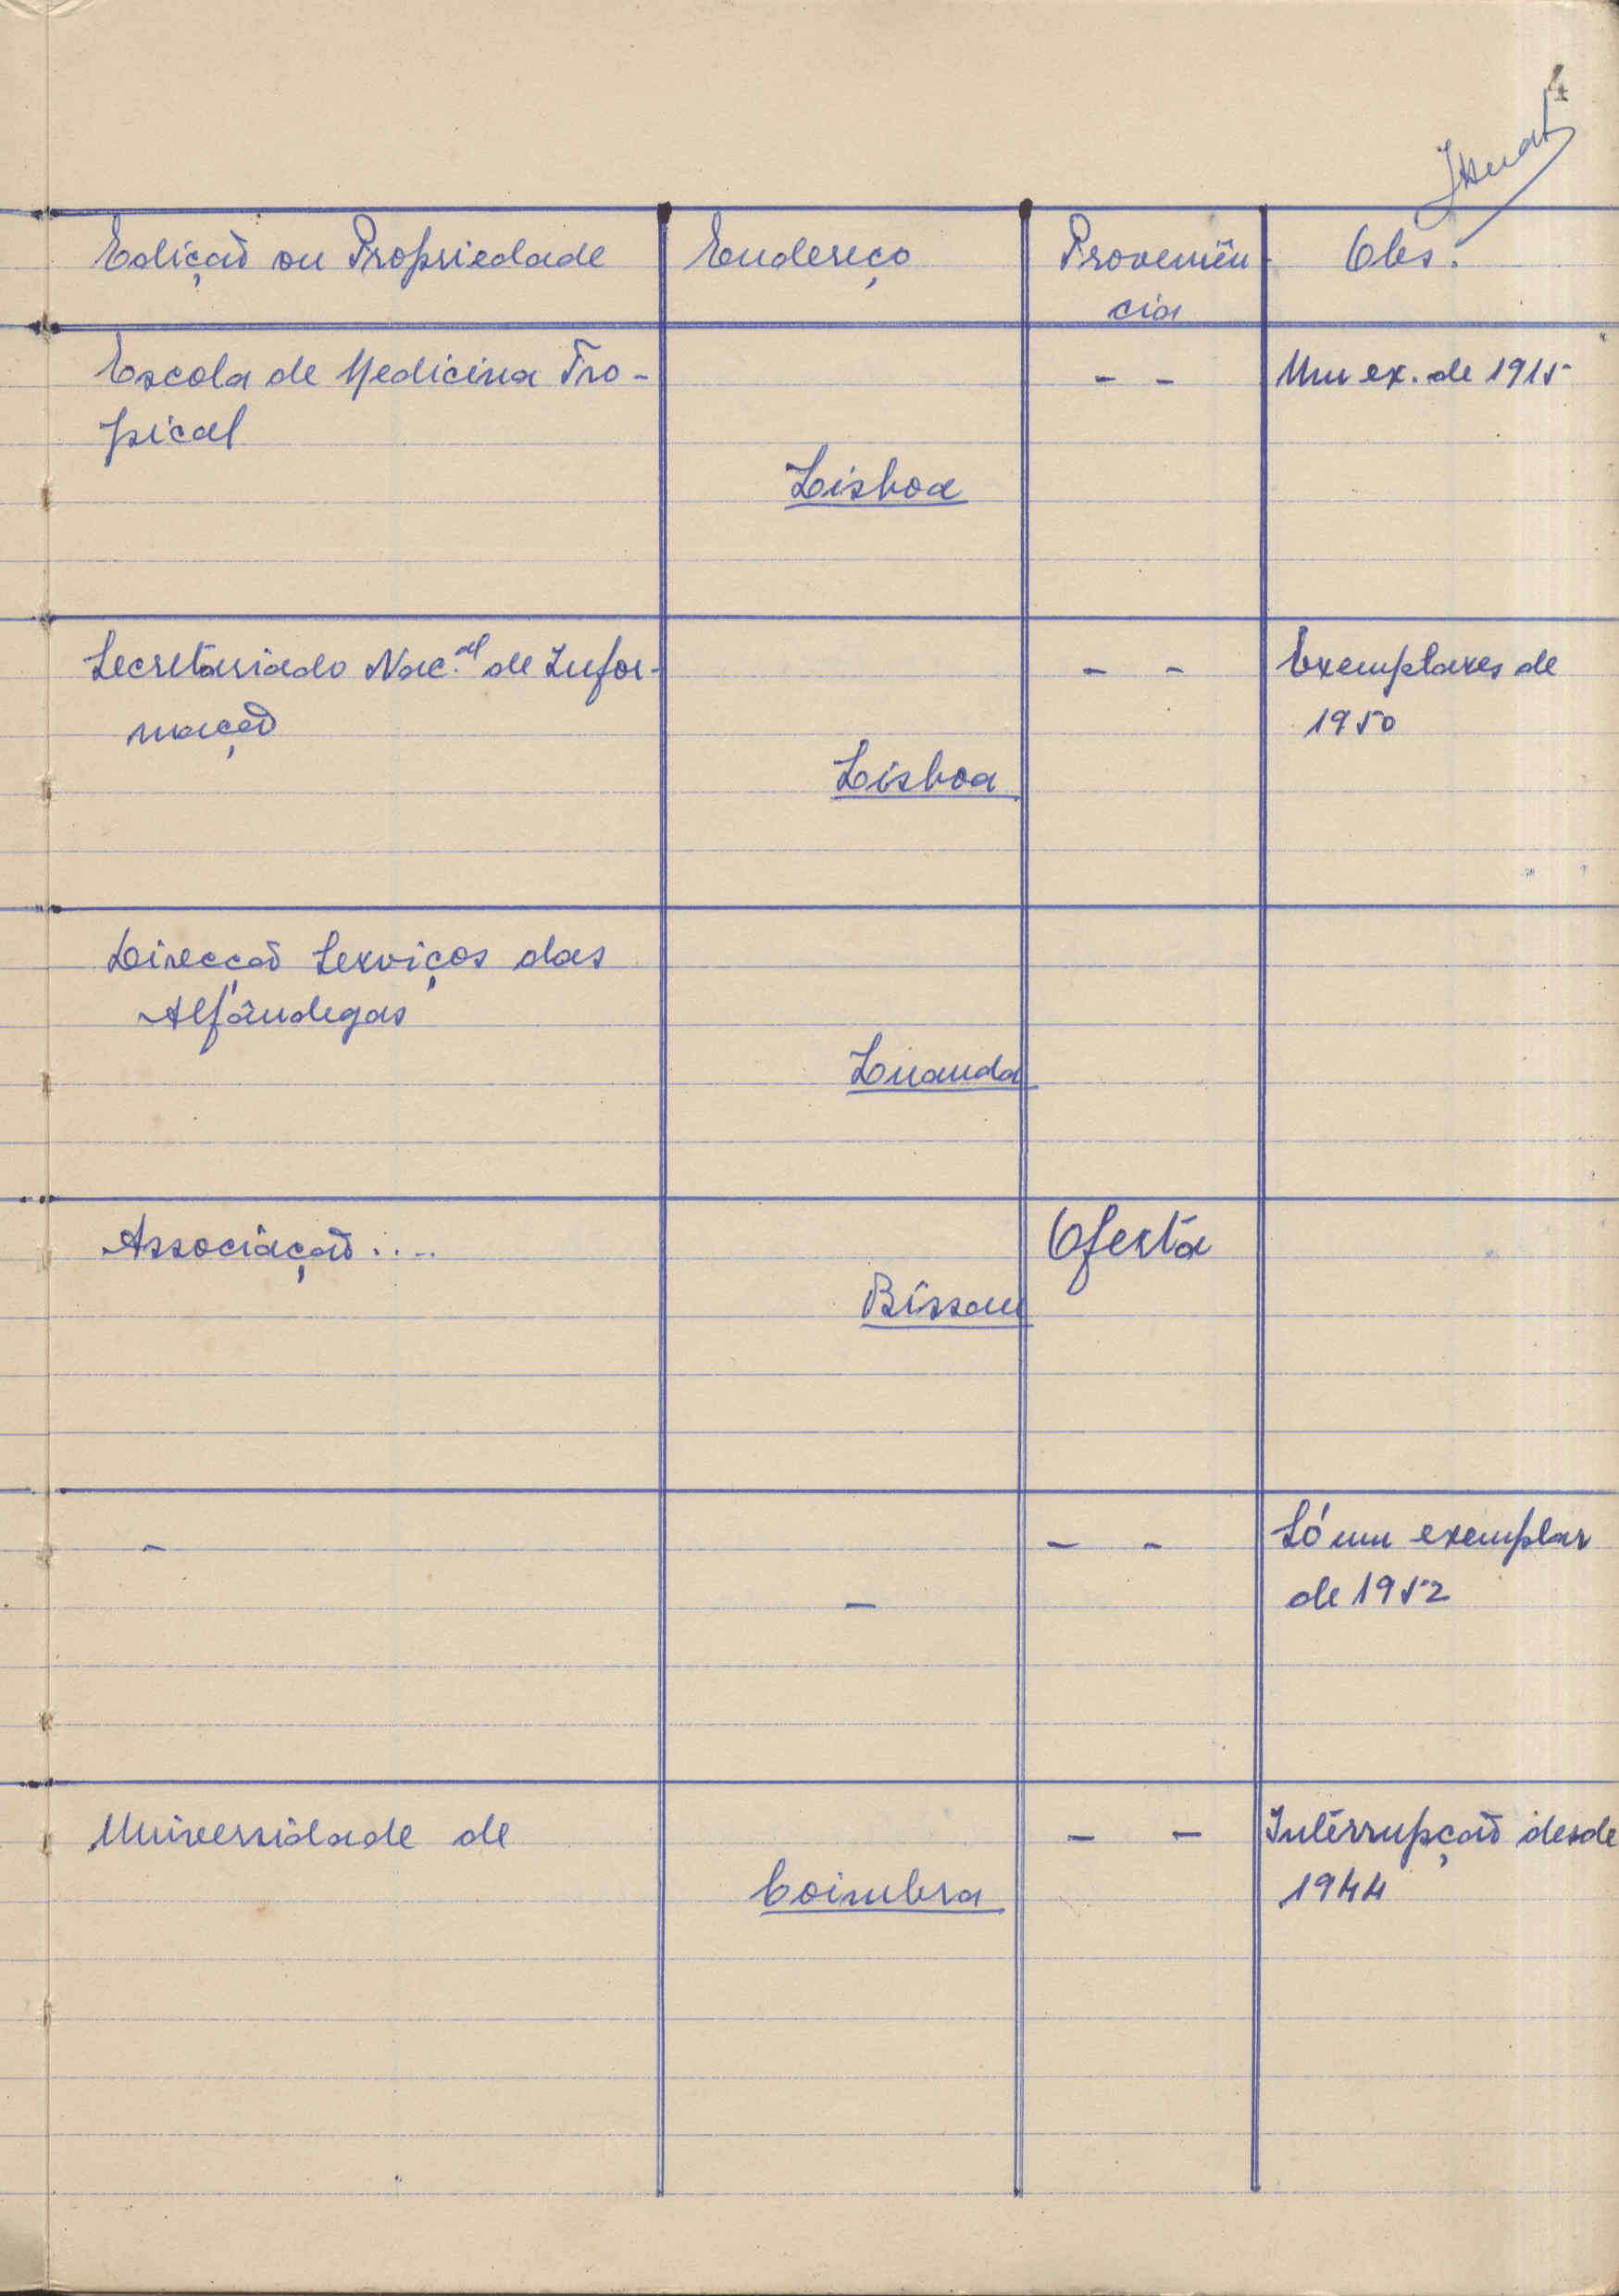 4
Edição ou Propriedade Endereço Proveniên-
cia Obs.
Escola de Medicina Tro- - - Um ex. de 1915
pical
Lisboa
Secretariado Nac.al de Infor- - - Exemplares de
mação 1950
Lisboa
Direcção Serviços das
Alfândegas
Luanda
Associação .... Oferta
Bissau
- - - Só um exemplar
- de 1952
Universidade de - - Intérrupção desde
Coimbra 1944